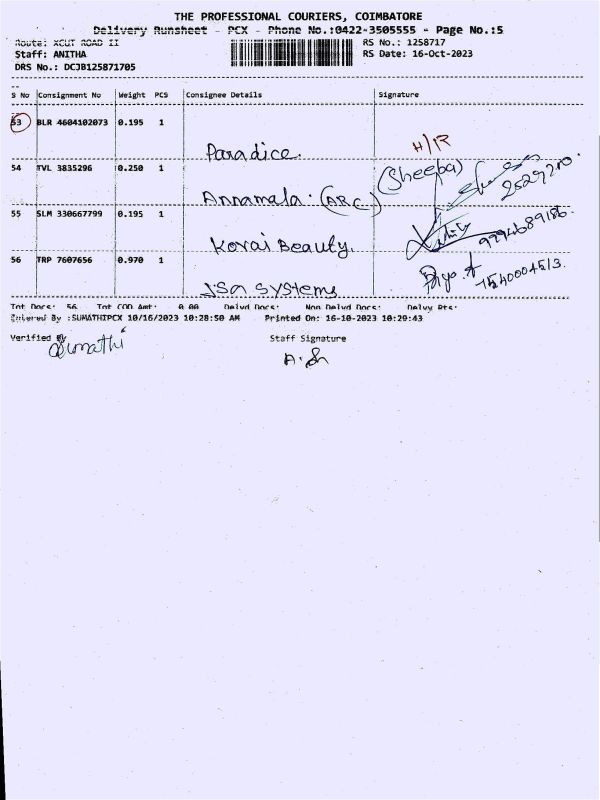 THE PROFESSIONAL COURIERS, COIMBATORE
Delivery Runsheet - PCX - Phone No.:0422-3505555 - Page No.:5
Route: XCUT ROAD II
RS No.: 1258717
Staff: ANITHA
RS Date: 16-Oct-2023
DRS No.: DCJB125871705
S No Consignment No Weight PCS Consignee Details Signature
53 BLR 4604102073 0.195 1
Paradice. H/R
54 TVL 3835296 0.250 1
(Sheeba)
Annamala. (ARC)
55 SLM 330667799 0.195 1
Kovai Beauty.
56 TRP 7607656 0.970 1
JSa Systems
Tot Docs: 56 Tot COD Amt: 0.00 Delvd Docs: Non Delvd Docs: Delvy Pts:
Entered By :SUMATHIPCX 10/16/2023 10:28:50 AM Printed On: 16-10-2023 10:29:43
Verified By Staff Signature
Sumathi